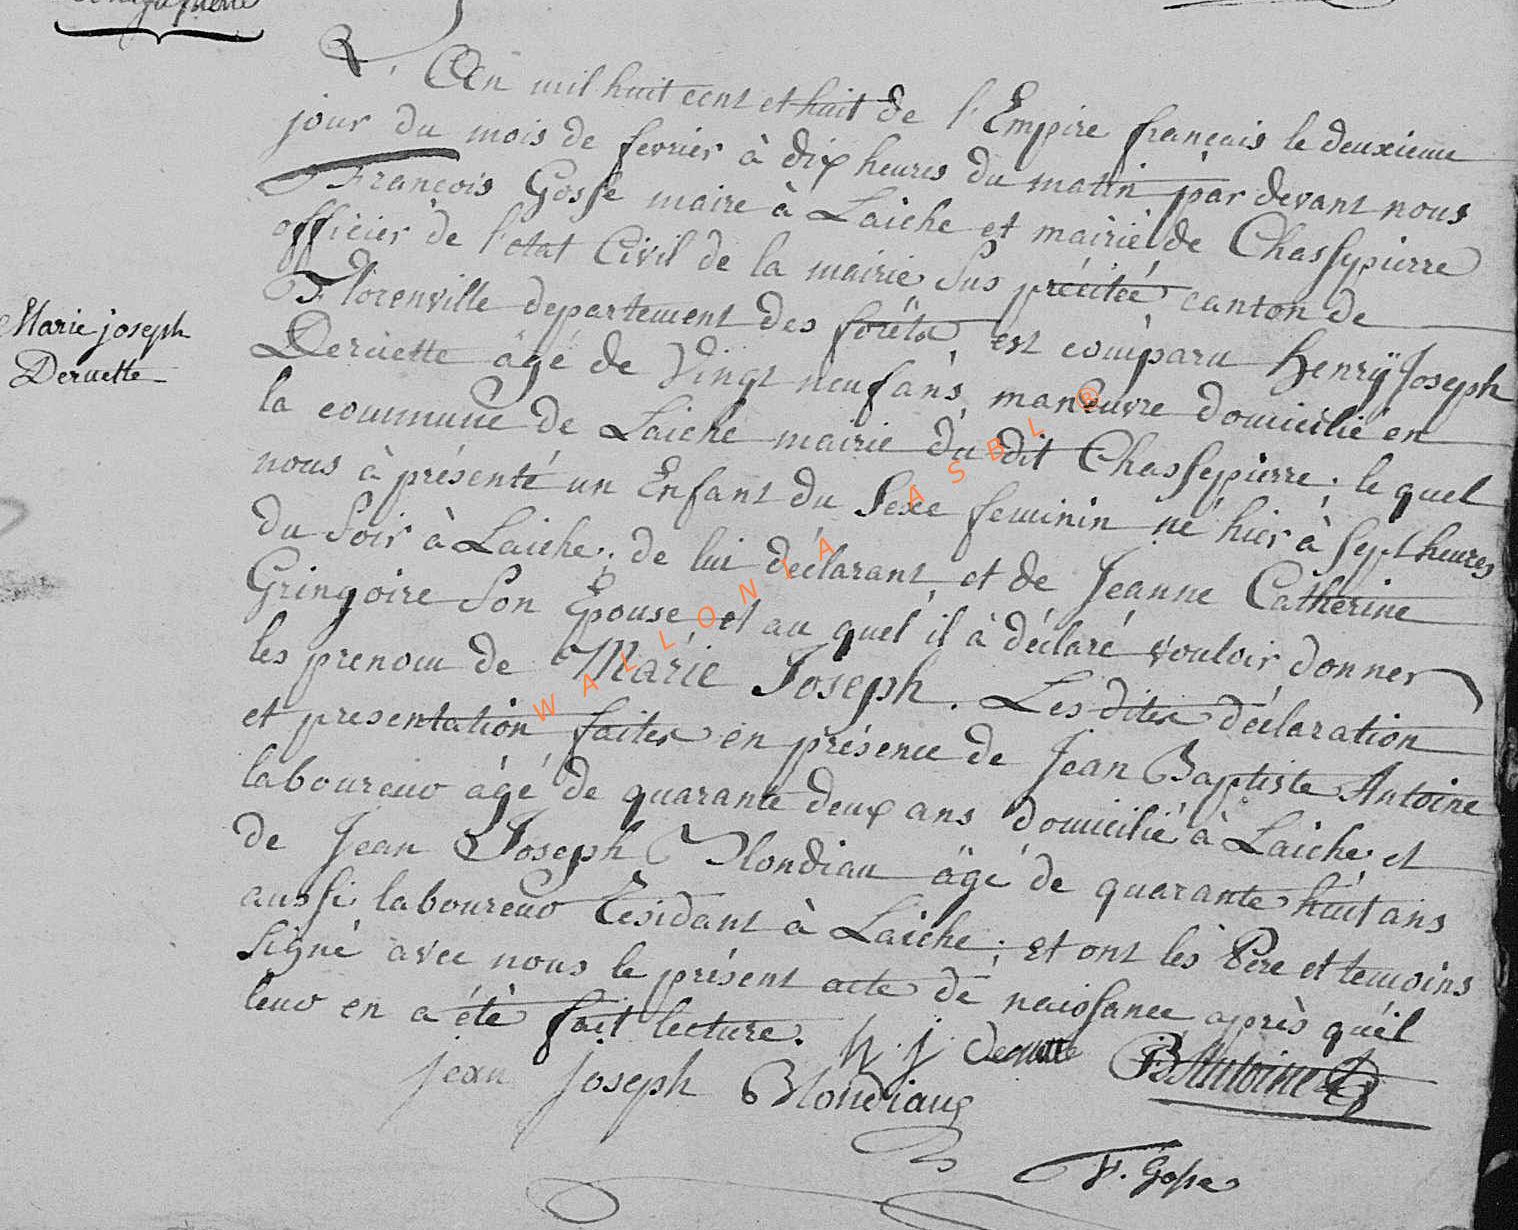 L'An mil huit cent et huit de l'Empire français le deuxieme
jour du mois de fevrier à dix heures du matin par devant nous
François Gosse maire à Laiche et mairie de Chassepierre
officier de l'etat Civil de la mairie Sus précitée canton de
Florenville departement des forêts est comparu Henrÿ Joseph
Marie joseph
Deruette
Deruette âgé de Vingt neuf ans manœuvre domicilié en
la commune de Laiche mairie du dit Chassepierre; le quel
nous à présenté un Enfant du Sexe feminin né hier à Sept heures
du Soir à Laiche; de lui déclarant et de Jeanne Catherine
Gringoire Son Epouse et au quel il à déclaré vouloir donner
les prenom de Marie Joseph. Les dites déclaration
et presentation faites en présence de Jean Baptiste Antoine
laboureur âgé de quarante deux ans domicilié à Laiche et
de Jean Joseph Blondiau âgé de quarante huit ans
aussi laboureur residant à Laiche; et ont les Père et temoins
Signé avec nous le présent acte de naissance après qu'il
leur en a été fait lecture. h. j. deruette JB Antoine
jean joseph Blondiaux
F. Gosse
WALLONIA ASBL ®